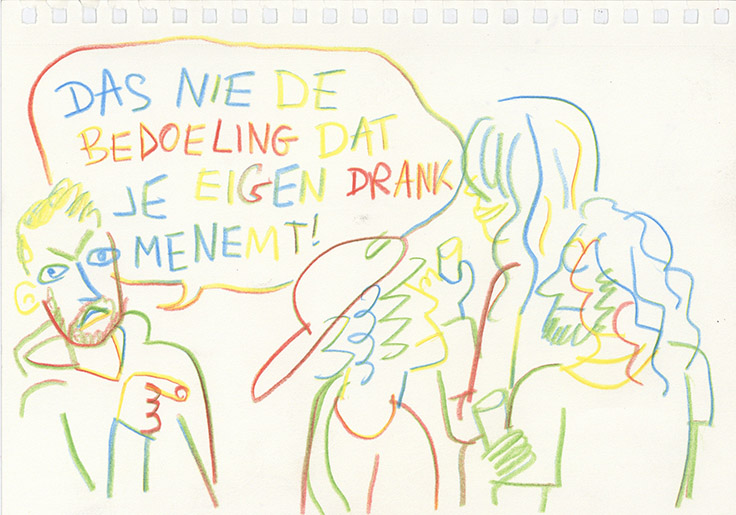 DAS NIE DE
BEDOELING DAT
JE EIGEN DRANK
MENEMT!